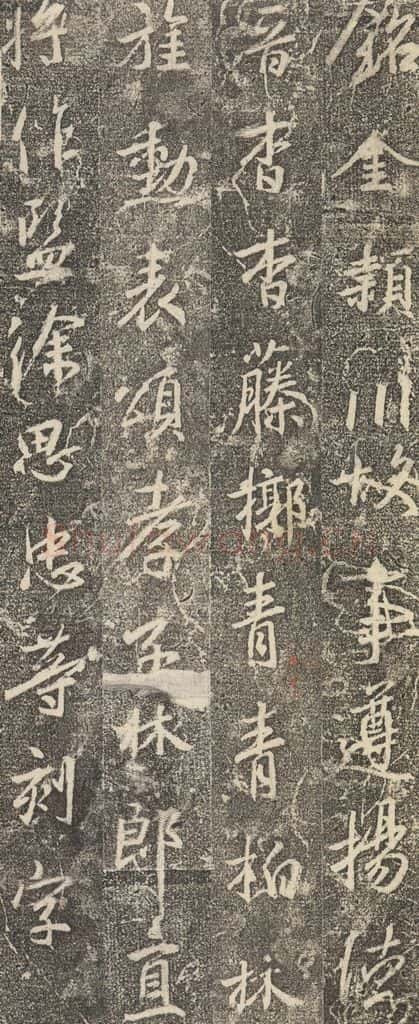 銘金頴川故事遵揚德
音杳杳藤槨青青柏林
旌勳表頌孝子林郎直
將作監徐思忠等刻字